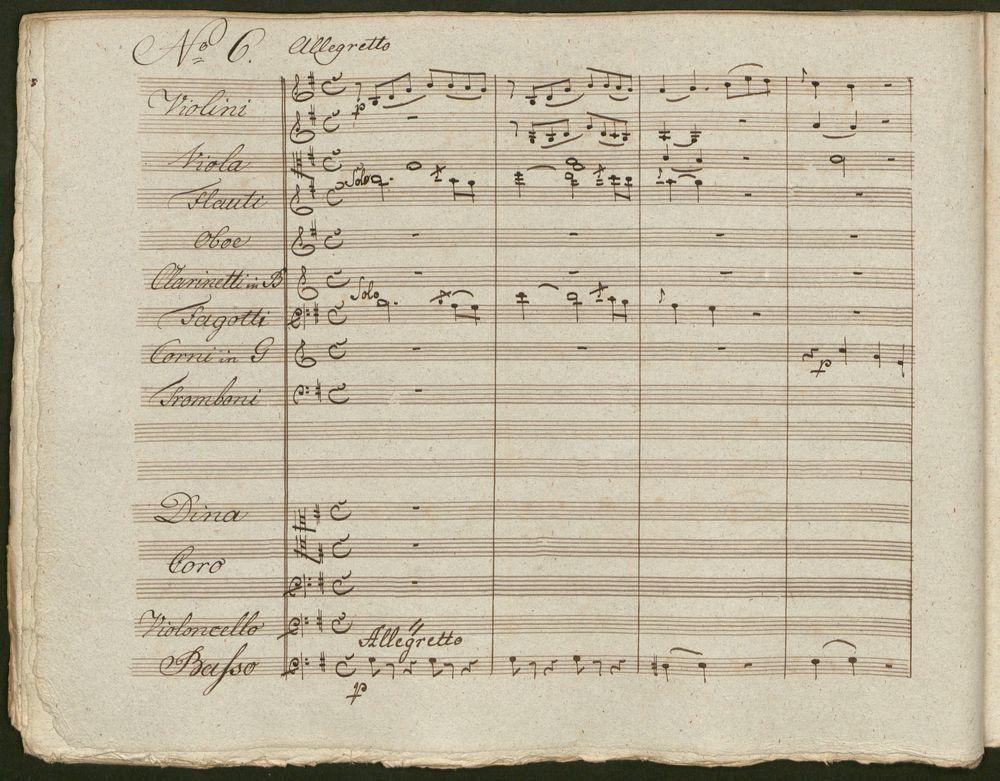 No 6. Allegretto
Violini
p
Viola
Solo
Flauti
Oboe
Clarinetti in B
Solo
Fagotti
Corni in G
p
Tromboni
Dina
Coro
Violoncello
Allegretto
Basso
p